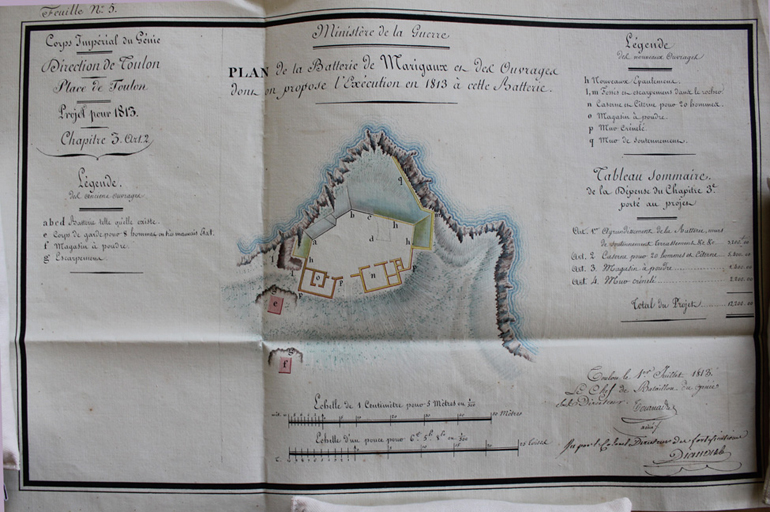 Feuille N.° 5.
Ministère de la Guerre
Corps Impérial du Génie
Direction de Toulon
Place de Toulon
Projet pour 1813.
Chapitre 3. Art. 2
PLAN de la Batterie de Marigaux et des Ouvrages
dont on propose l'Exécution en 1813 à cette Batterie.
Légende.
des anciens ouvrages.
a b c d Batterie telle qu'elle existe.
e Corps de garde pour 8 hommes en très mauvais État.
f Magasin à poudre.
g Escarpemens
Légende
des nouveaux Ouvrages
h Nouveaux Épaulemens.
l, m Fossés et escarpemens dans le rocher
n Caserne et Citerne pour 20 hommes.
o Magasin à poudre.
p Mur crénelé
q Mur de soutennement.
Tableau Sommaire.
de la Dépense du Chapitre 3.e
porté au projet
Art. 1.er Agrandissement de la Batterie, murs
de soutennement
Art. 2. Caserne pour 20 hommes et Citerne
Art. 3. Magasin à poudre
Art. 4. Mur crénelé
Total du Projet
q
b
c
h
d
h
a
h
h
o
f
n
p
e
f
Échelle de 1 Centimètre pour 5 Mètres ou
Mètres
Échelle d'un pouce pour
Toises
Toulon le 1.er Juillet 1813.
Le Chef de Bataillon du génie
Sous Directeur
Vu par le Colonel Directeur des fortifications